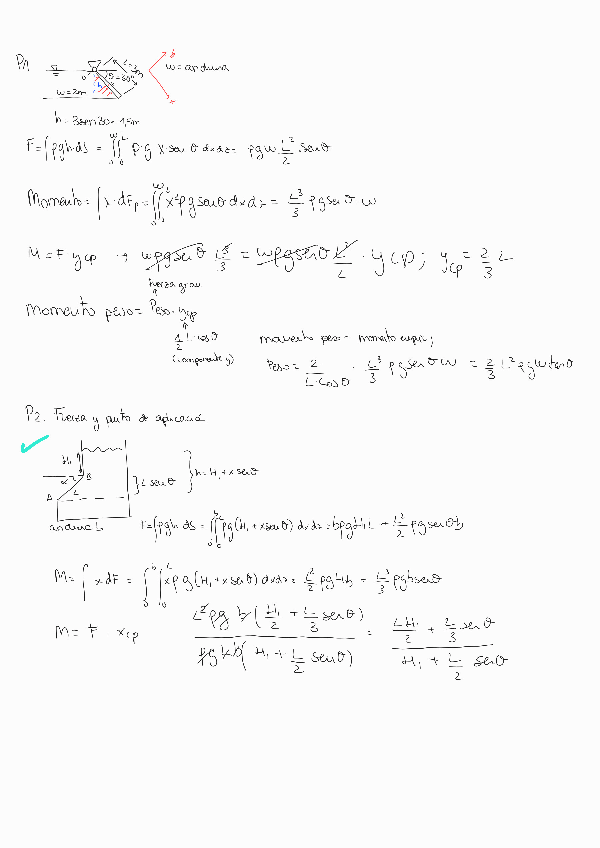 P1
L=3m
θ=30°
w=2m
w=anchura
h = 3sen30 = 1,5m
F=∫ρgh·ds = ∫∫ ρ·g x·senθ dxdz = ρgw L²/2 senθ
Momento = ∫x·dFp = ∫∫ x²ρg senθ dxdz = L³/3 ρg senθ w
M = F ycp → wρg senθ L³/3 = wρg senθ L²/2 · ycp ; ycp = 2/3 L
fuerza grav
momento peso = Peso·ycp
1/2 L·cosθ
(componente y)
momento peso = momento
Peso = 2/(L·cosθ) · L³/3 ρg senθ w = 2/3 L²ρgw tanθ
P2. Fuerza y punto de aplicació
H₁
α
B
A
L
L senθ
h=H₁+x senθ
anchura b
F=∫ρgh ds = ∫∫ρg(H₁+x senθ) dxdz = bρgH₁L + L²/2 ρg senθ b
M= ∫ x dF = ∫∫ xρg(H₁+x senθ) dxdz = L²/2 ρgH₁b + L³/3 ρgb senθ
M= F xcp
L²ρg b(H₁/2 + L/3 senθ) / ρgLb(H₁ + L/2 senθ) = (LH₁/2 + L²/3 senθ) / (H₁ + L/2 senθ)